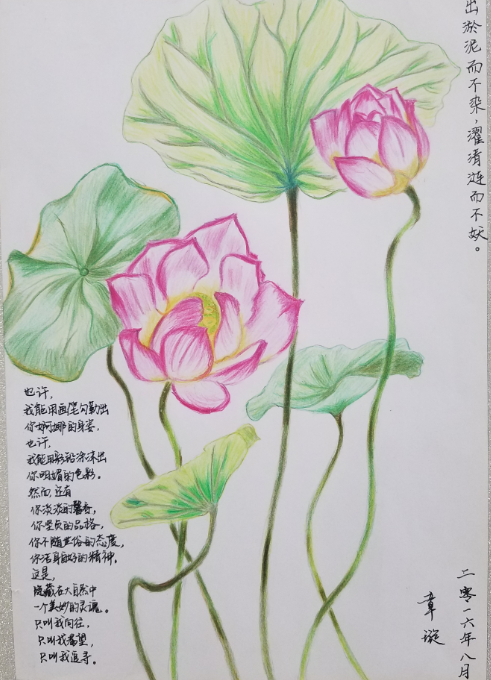 出淤泥而不染，濯清涟而不妖。
也许，
我能用画笔勾勒出
你婀娜的身姿，
也许，
我能用彩铅涂沫出
你明媚的色彩。
然而，还有
你淡淡的馨香，
你坚贞的品格，
你不随世俗的态度，
你洁身自好的精神，
这是，
隐藏在大自然中
一个美妙的灵魂。
只叫我向往，
只叫我希望，
只叫我追寻。
二零一六年八月
章璇